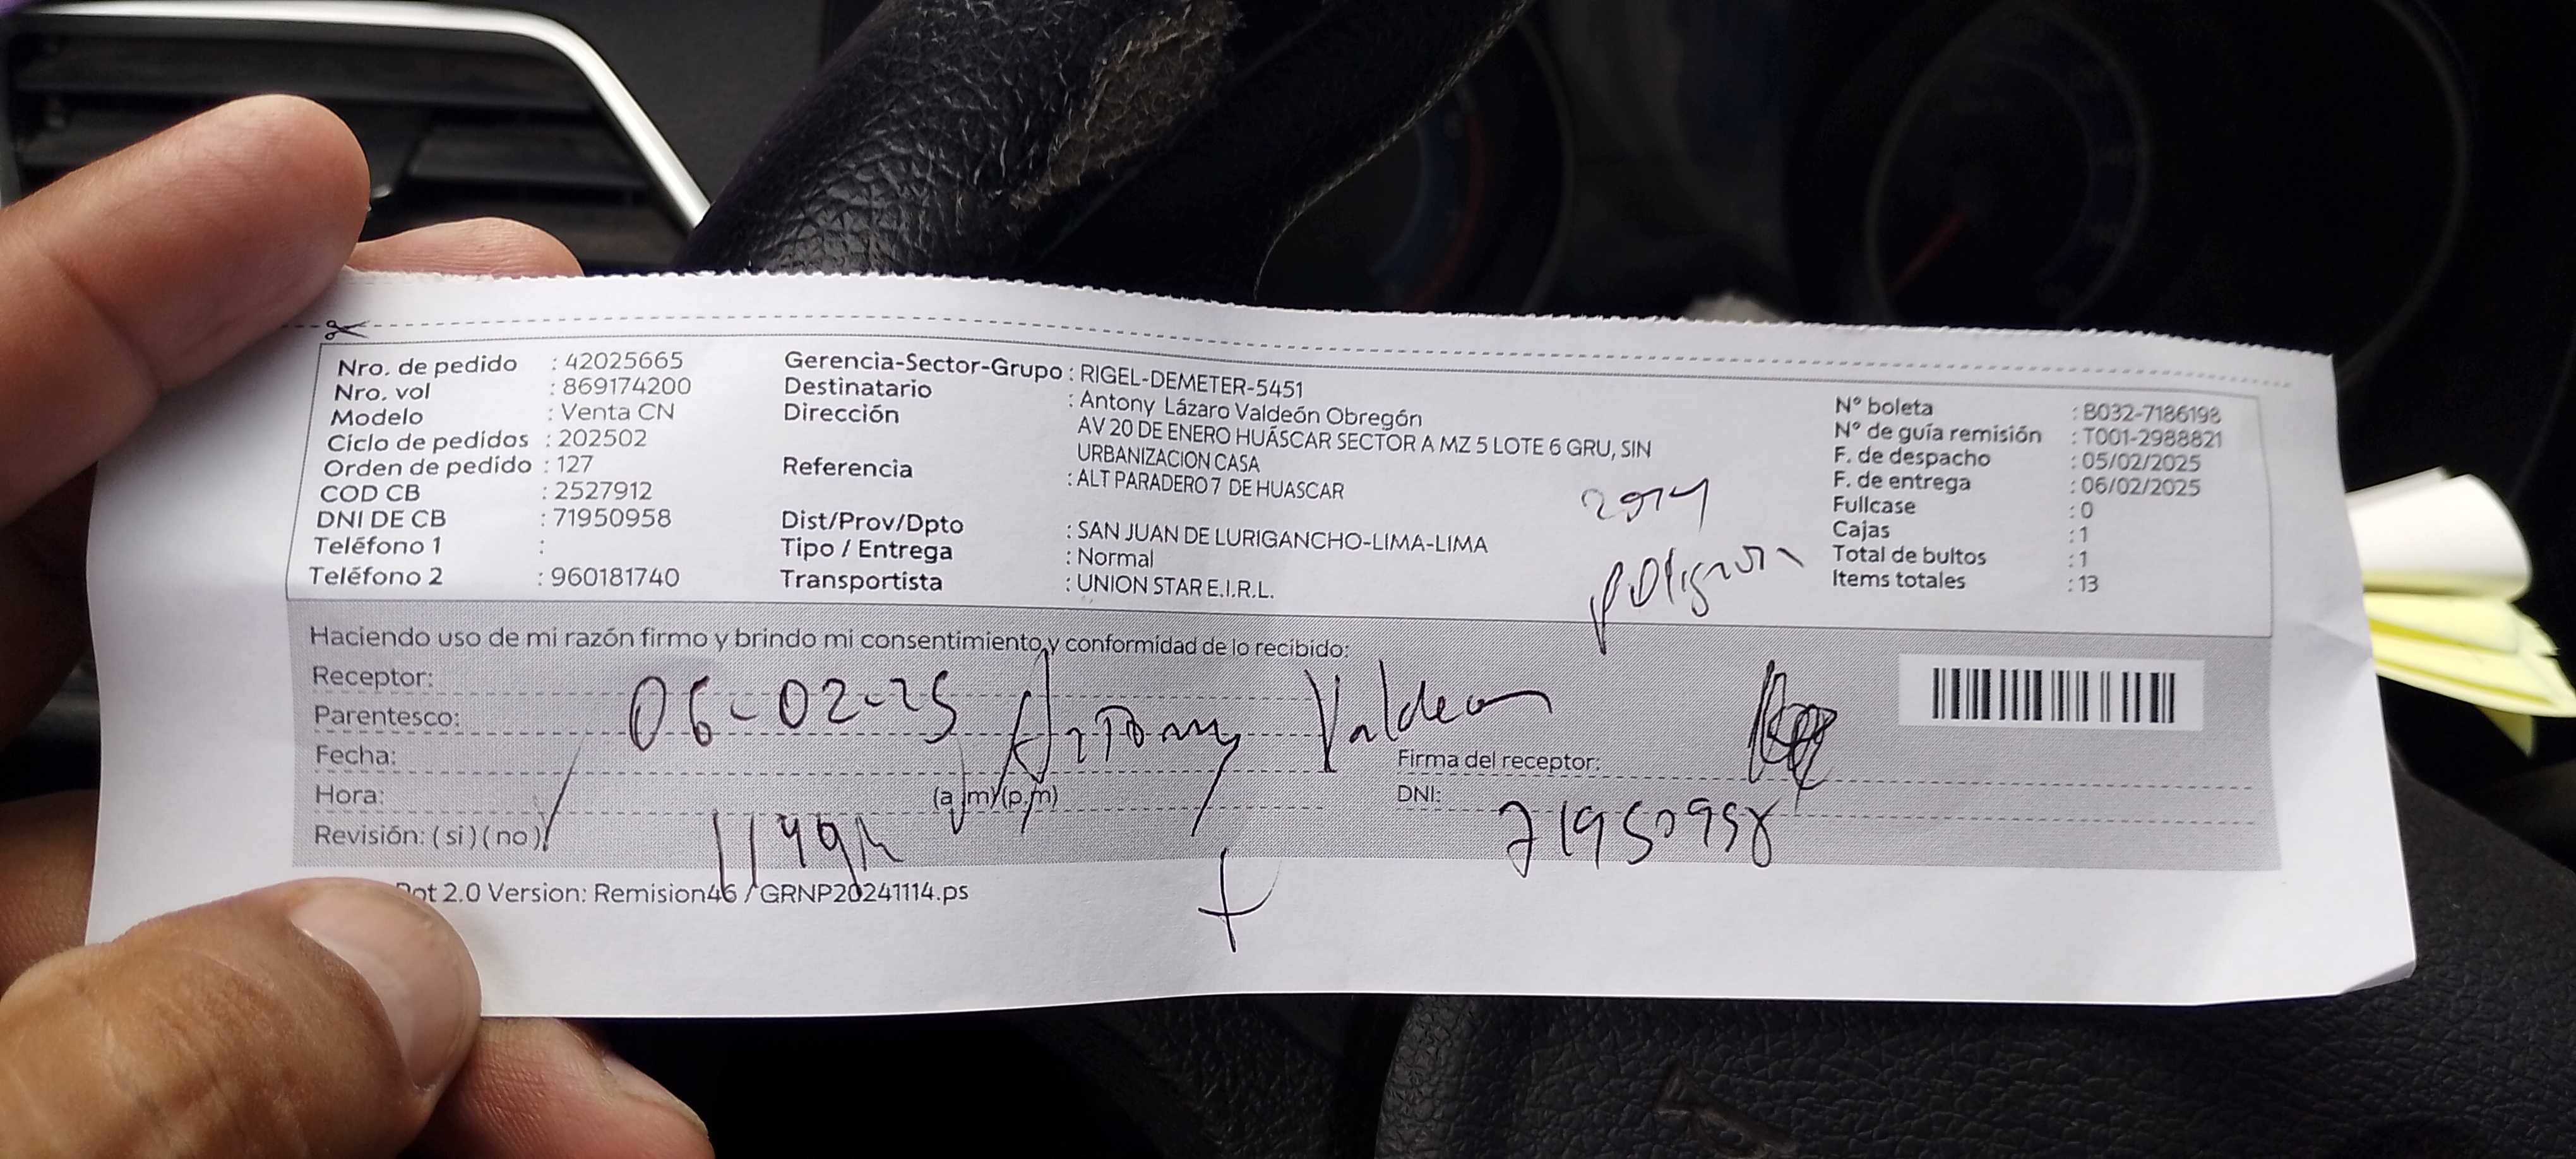 Nro. de pedido : 42025665
Nro. vol : 869174200
Modelo : Venta CN
Ciclo de pedidos : 202502
Orden de pedido : 127
COD CB : 2527912
DNI DE CB : 71950958
Teléfono 1 :
Teléfono 2 : 960181740
Gerencia-Sector-Grupo : RIGEL-DEMETER-5451
Destinatario : Antony Lázaro Valdeón Obregón
Dirección AV 20 DE ENERO HUÁSCAR SECTOR A MZ 5 LOTE 6 GRU, SIN
URBANIZACION CASA
Referencia : ALT PARADERO 7 DE HUASCAR
Dist/Prov/Dpto : SAN JUAN DE LURIGANCHO-LIMA-LIMA
Tipo / Entrega : Normal
Transportista : UNION STAR E.I.R.L.
N° boleta : B032-7186198
N° de guía remisión : T001-2988821
F. de despacho : 05/02/2025
F. de entrega : 06/02/2025
Fullcase : 0
Cajas : 1
Total de bultos : 1
Items totales : 13
Haciendo uso de mi razón firmo y brindo mi consentimiento y conformidad de lo recibido:
Receptor:
Parentesco: 06-02-25 Antony Valdeon
Fecha:
Firma del receptor:
Hora: (a.m)(p.m)
DNI: 71950958
Revisión: (si) (no)
ot 2.0 Version: Remision46 / GRNP20241114.ps